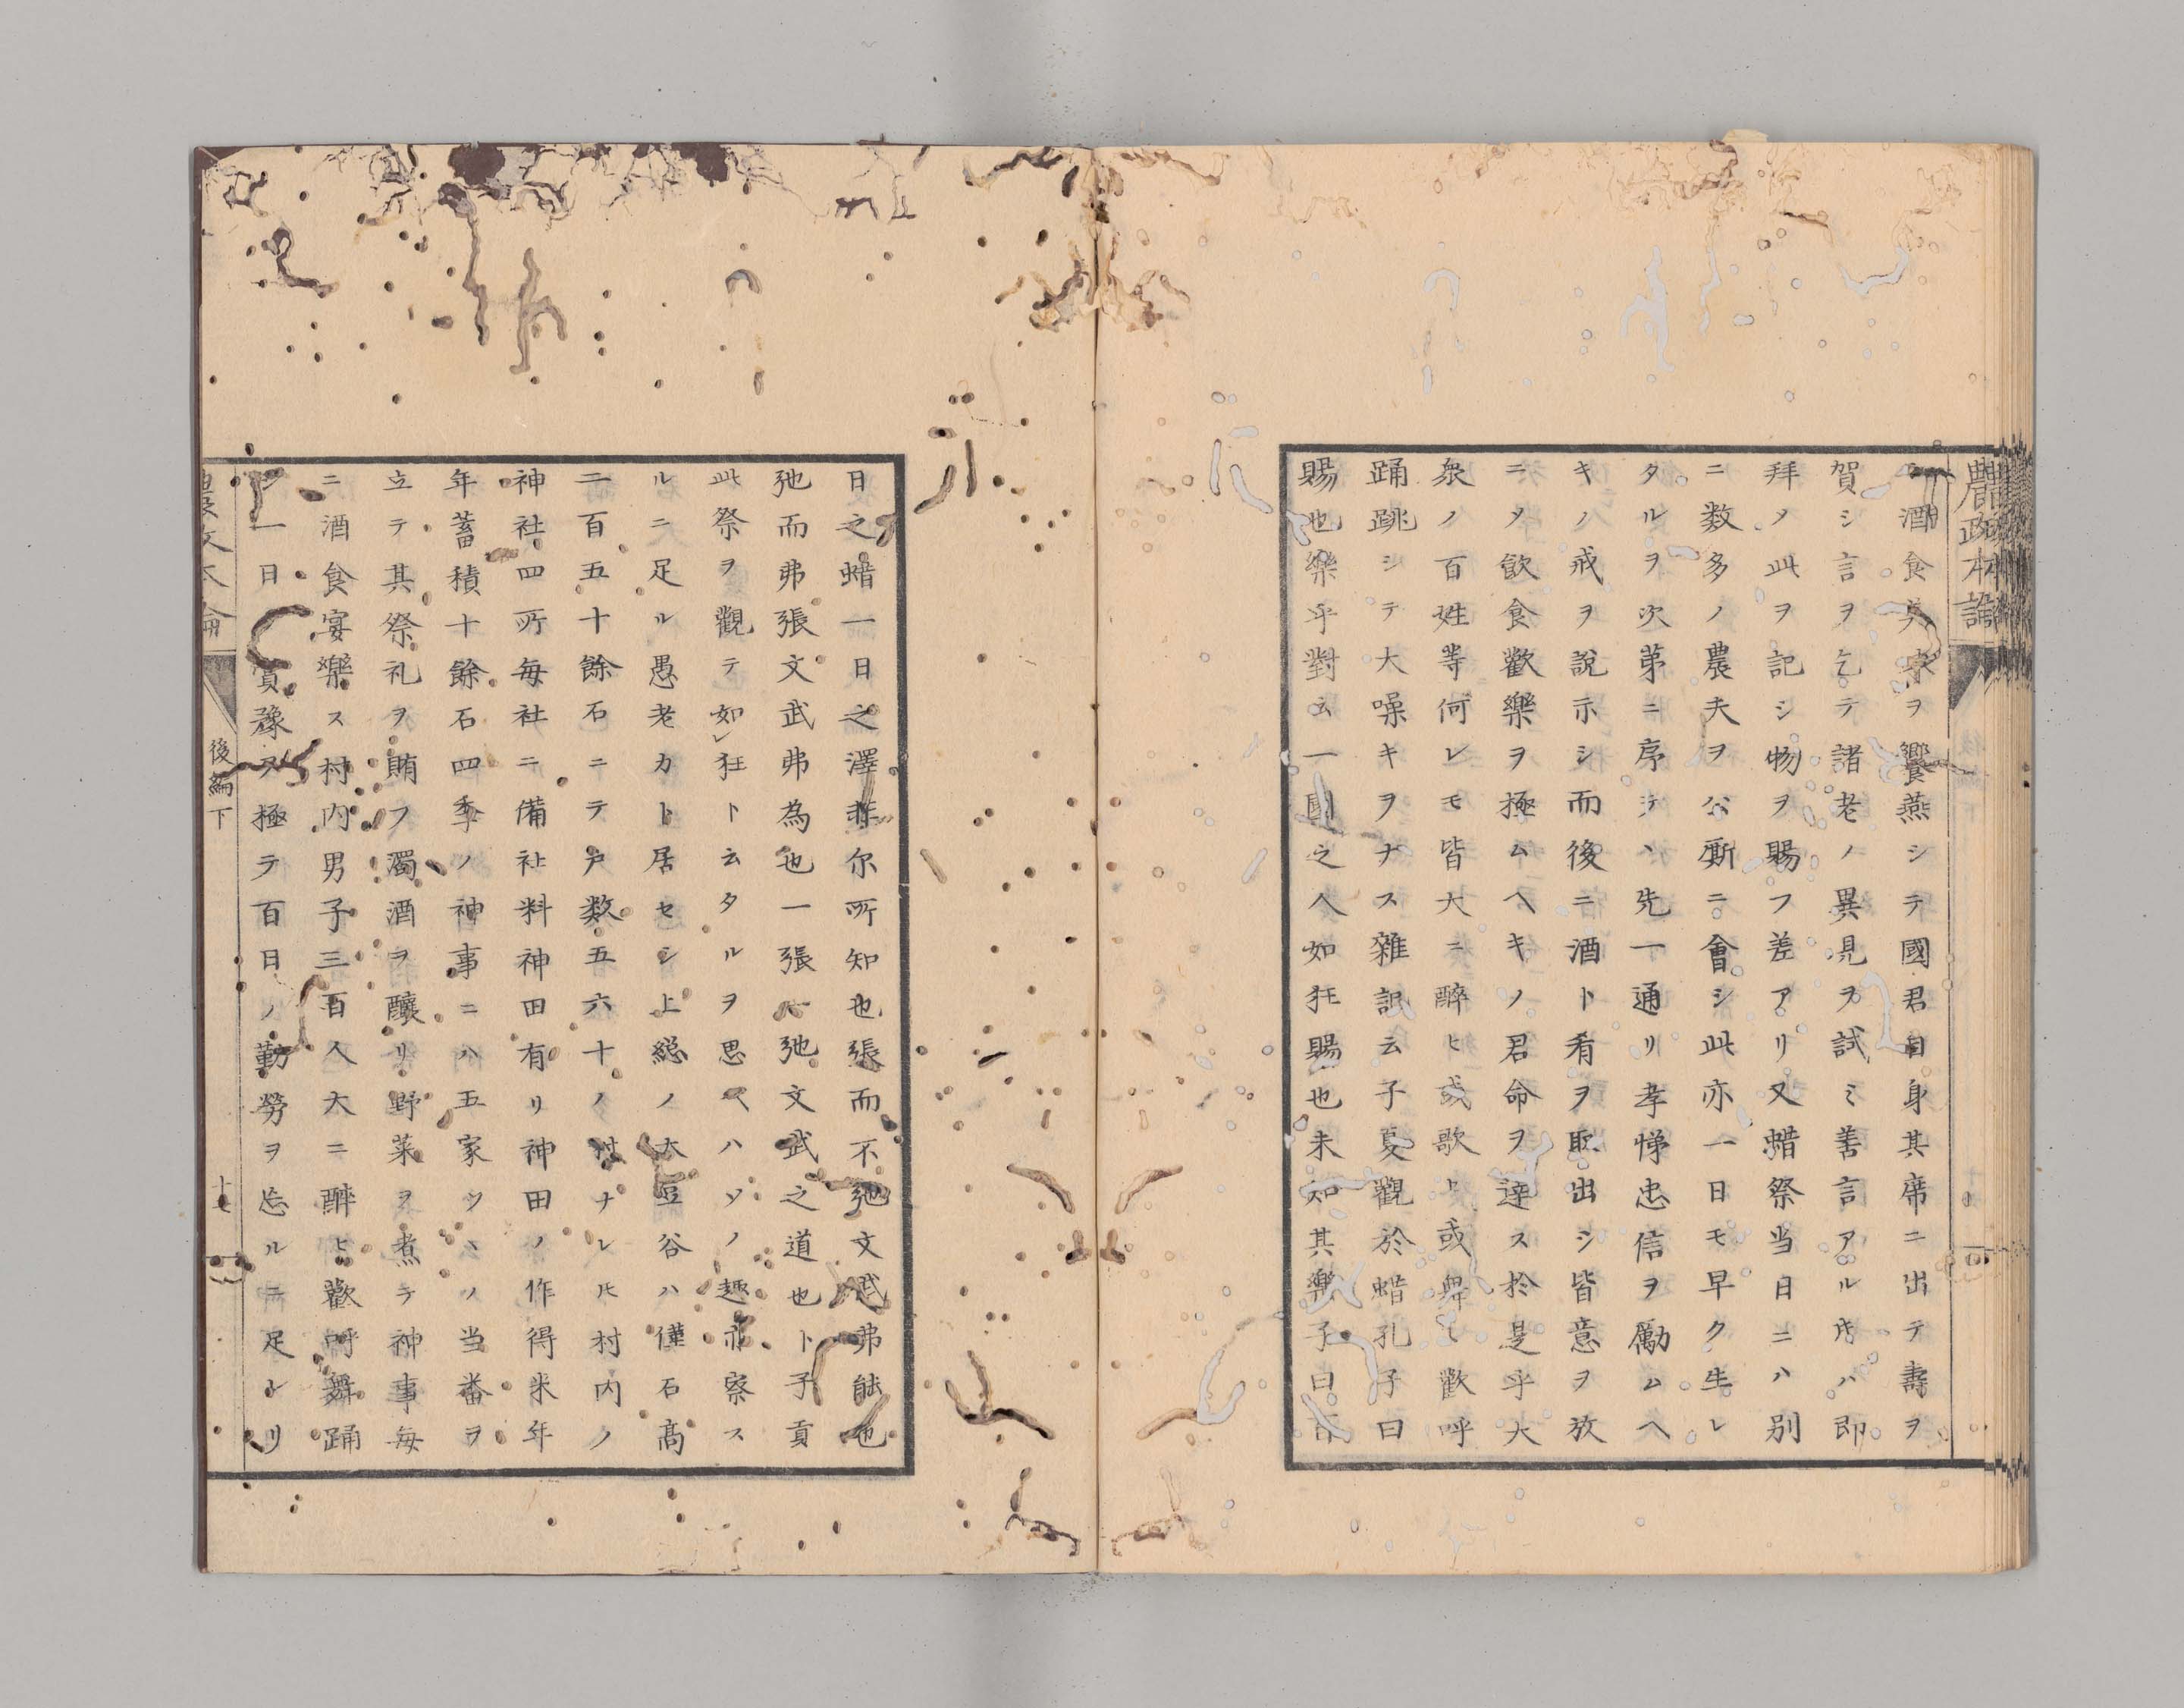 農政本論
ニ酒食美宗ヲ饗燕シテ國君自身其席ニ出テ壽ヲ
賀シ言ヲ乞テ諸老ノ異見ヲ試ミ善言アル𪜈ハ即
拜メ此ヲ記シ物ヲ賜フ差アリ又蜡祭当日ニハ別
ニ数多ノ農夫ヲ公厮ニ會シ此亦一日モ早ク生レ
タルヲ次第ニ序テヽ先一通リ孝悌忠信ヲ勵ムヘ
キノ戒ヲ說示シ而後ニ酒ト肴ヲ取出シ皆意ヲ放
ニメ飮食歡樂ヲ極ムヘキノ君命ヲ達ス於是乎大
衆ノ百姓等何レモ皆大ニ醉ヒ或歌ヒ或舞ヒ歡呼
踊跳シテ大噪キヲナス雜記云子夏觀於蜡孔子曰
賜也樂乎對云一國之人如狂賜也未知其樂子曰百
日之蜡一日之澤非尔所知也張而不弛文武弗能也
弛而弗張文武弗為也一張一弛文武之道也ト子貢
此祭ヲ觀テ如レ狂ト云タルヲ思ヘハソノ趣亦察ス
ルニ足ル愚老カト居セシ上総ノ大豆谷ハ僅石高
二百五十餘石ニテ戸数五六十ノ村ナレ𪜈村内ノ
神社四所毎社ニ備社料神田有リ神田ノ作得米年
年蓄積十餘石四季ノ神事ニハ五家ツヽノ当番ヲ
立テ其祭礼ヲ賄フ濁酒ヲ釀リ野菜ヲ煮テ神事毎
ニ酒食宴樂ス村内男子三百人大ニ醉ヒ歡呼舞踊
シ一日ノ賞豫ヲ極テ百日ノ勤勞ヲ忘ルニ足レリ
後編下